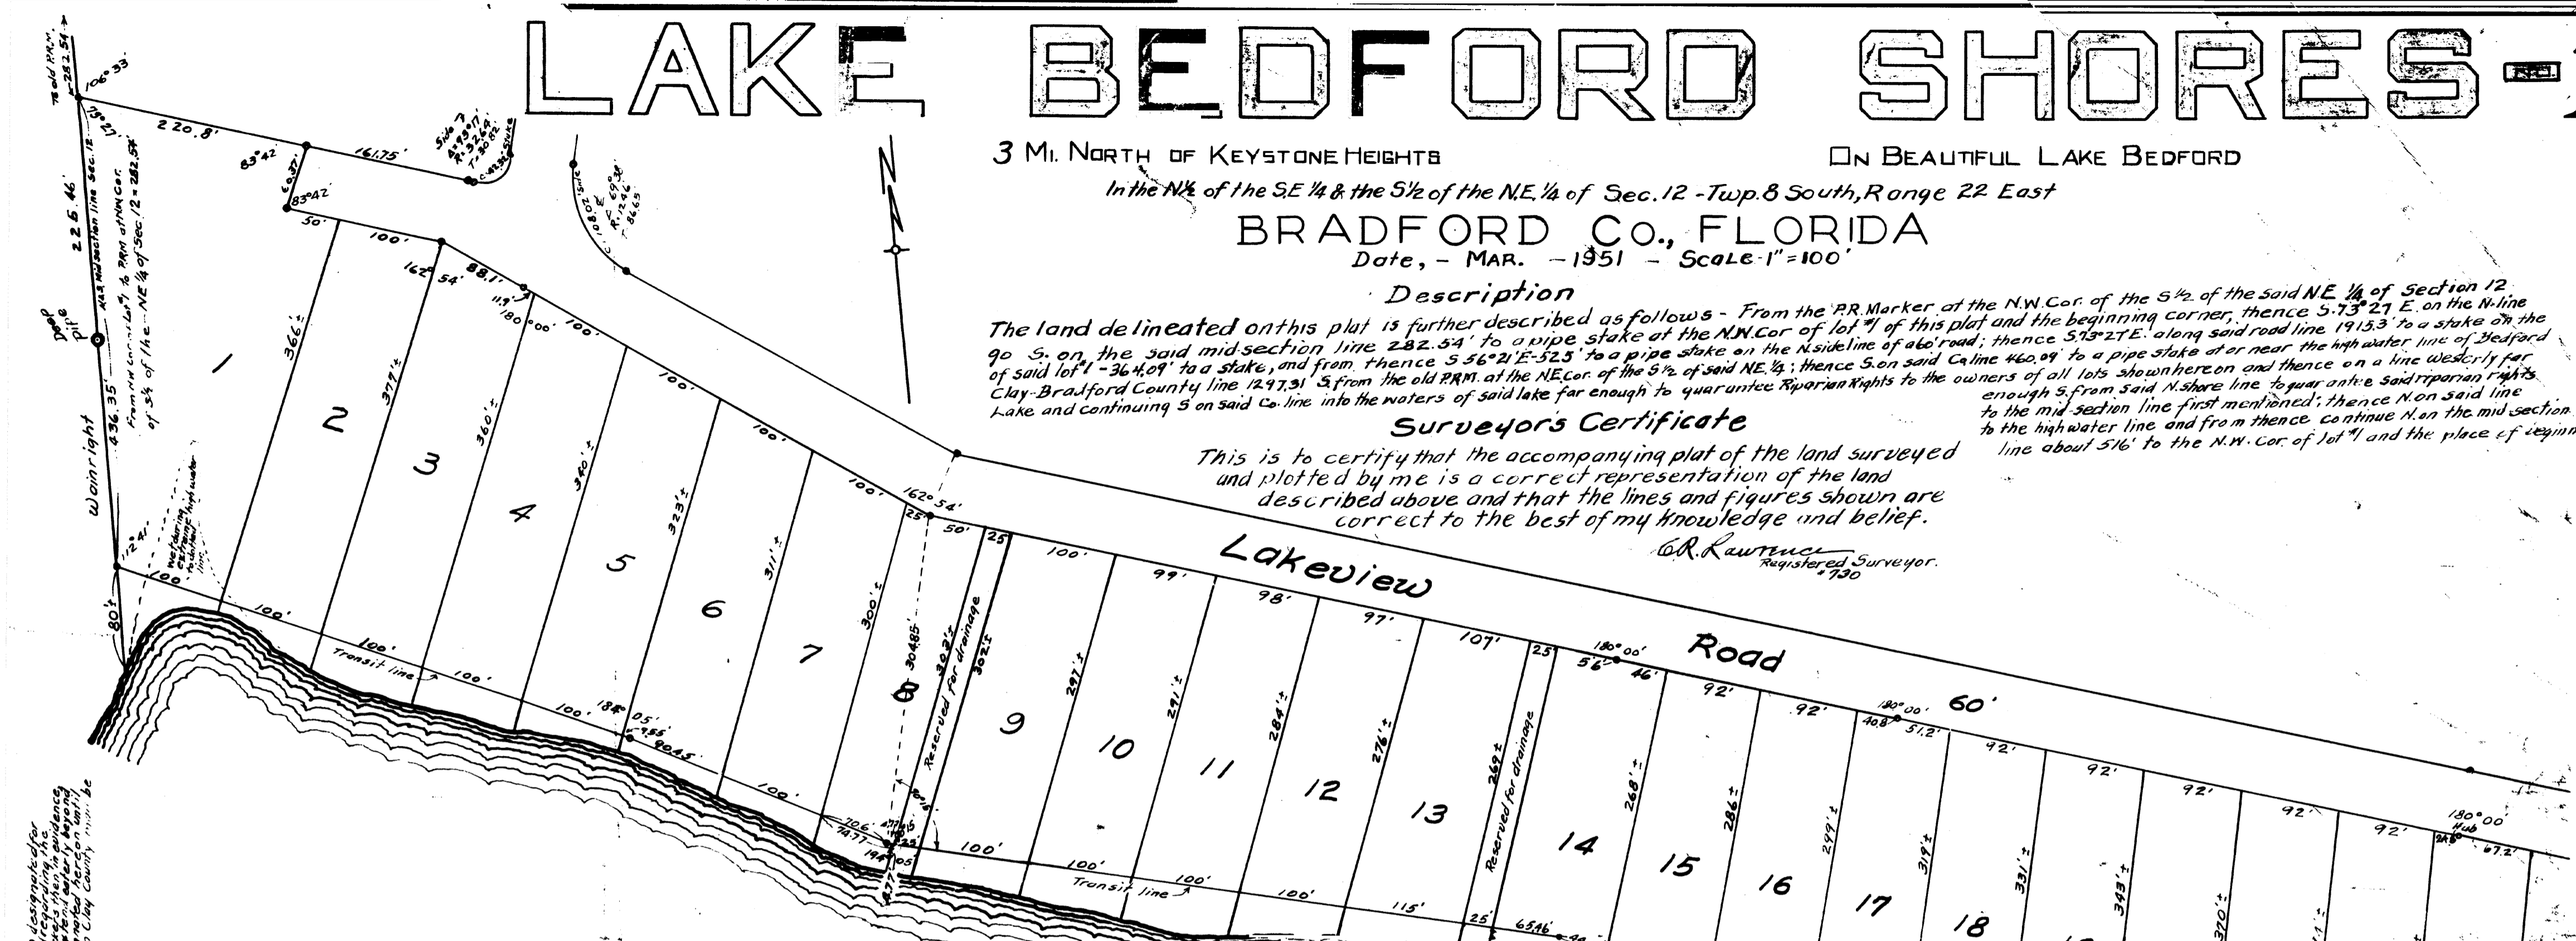 LAKE BEDFORD SHORES-
3 MI. NORTH OF KEYSTONE HEIGHTS
ON BEAUTIFUL LAKE BEDFORD
In the N½ of the S.E ¼ & the S½ of the N.E. ¼ of Sec. 12 - Twp. 8 South, Range 22 East
BRADFORD Co., FLORIDA
Date, - MAR. - 1951 - SCALE-1"=100'
Description
The land delineated on this plat is further described as follows - From the P.R. Marker at the N.W. Cor. of the S ½ of the said N.E ¼ of Section 12
go S. on the said midsection line 282.54' to a pipe stake at the N.W. Cor of lot #1 of this plat and the beginning corner, thence S.73°27 E. on the N-line
of said lot #1 - 364.09' to a stake, and from thence S 56°21' E-525' to a pipe stake on the N. sideline of a 60' road; thence S.73°27 E. along said road line 1915.3' to a stake on the
Clay-Bradford County line 1297.31' S. from the old P.R.M. at the N.E. Cor. of the S ½ of said N.E. ¼; thence S. on said Co. line 460.09' to a pipe stake at or near the high water line of Bedford
Lake and continuing S on said Co. line into the waters of said lake far enough to guaruntee Riparian Rights to the owners of all lots shown hereon and thence on a line westerly far
enough S. from said N. shore line to guarantee said riparian rights
to the mid-section line first mentioned; thence N. on said line
to the high water line and from thence continue N. on the mid section
line about 516' to the N.W. Cor. of lot #1 and the place of
Surveyor's Certificate
This is to certify that the accompanying plat of the land surveyed
and plotted by me is a correct representation of the land
described above and that the lines and figures shown are
correct to the best of my knowledge and belief.
C.R. Lawrence
Registered Surveyor.
#730
To old P.R.M.
282.54
106°33
73°27
220.8'
161.75'
83°42'
60.37'
83°42'
50'
100'
162°54'
88.1'
11.9'
180°00'
100'
100'
100'
100'
162°54'
25'
50'
25'
100'
99'
98'
97'
107'
25'
180°00'
5.6'
46'
92'
92'
180°00'
40.8'
51.2'
92'
92'
92'
92'
92'
180°00'
Hub
67.2'
Lakeview Road 60'
225.46'
N & S Mid section line Sec. 12
of S½ of the NE ¼ of Sec. 12 = 282.54'
Deep
Pipe
436.35'
Wainright
80'±
wet during
extreme high water
to dotted
line
1
366'±
2
379'±
3
360'±
4
340'±
5
323'±
6
311'±
7
300'±
8
304.85'
303'±
Reserved for drainage
302'±
9
297'±
10
291'±
11
284'±
12
276'±
13
269'±
Reserved for drainage
14
268'±
15
286'±
16
299'±
17
319'±
18
331'±
343'±
100'
100'
100'
Transit line
100'
100'
184°05'
9.55'
90.45'
100'
70.6'
74.77'
194°05'
100'
100'
Transit line
100'
100'
115'
25'
65.46'
designated for